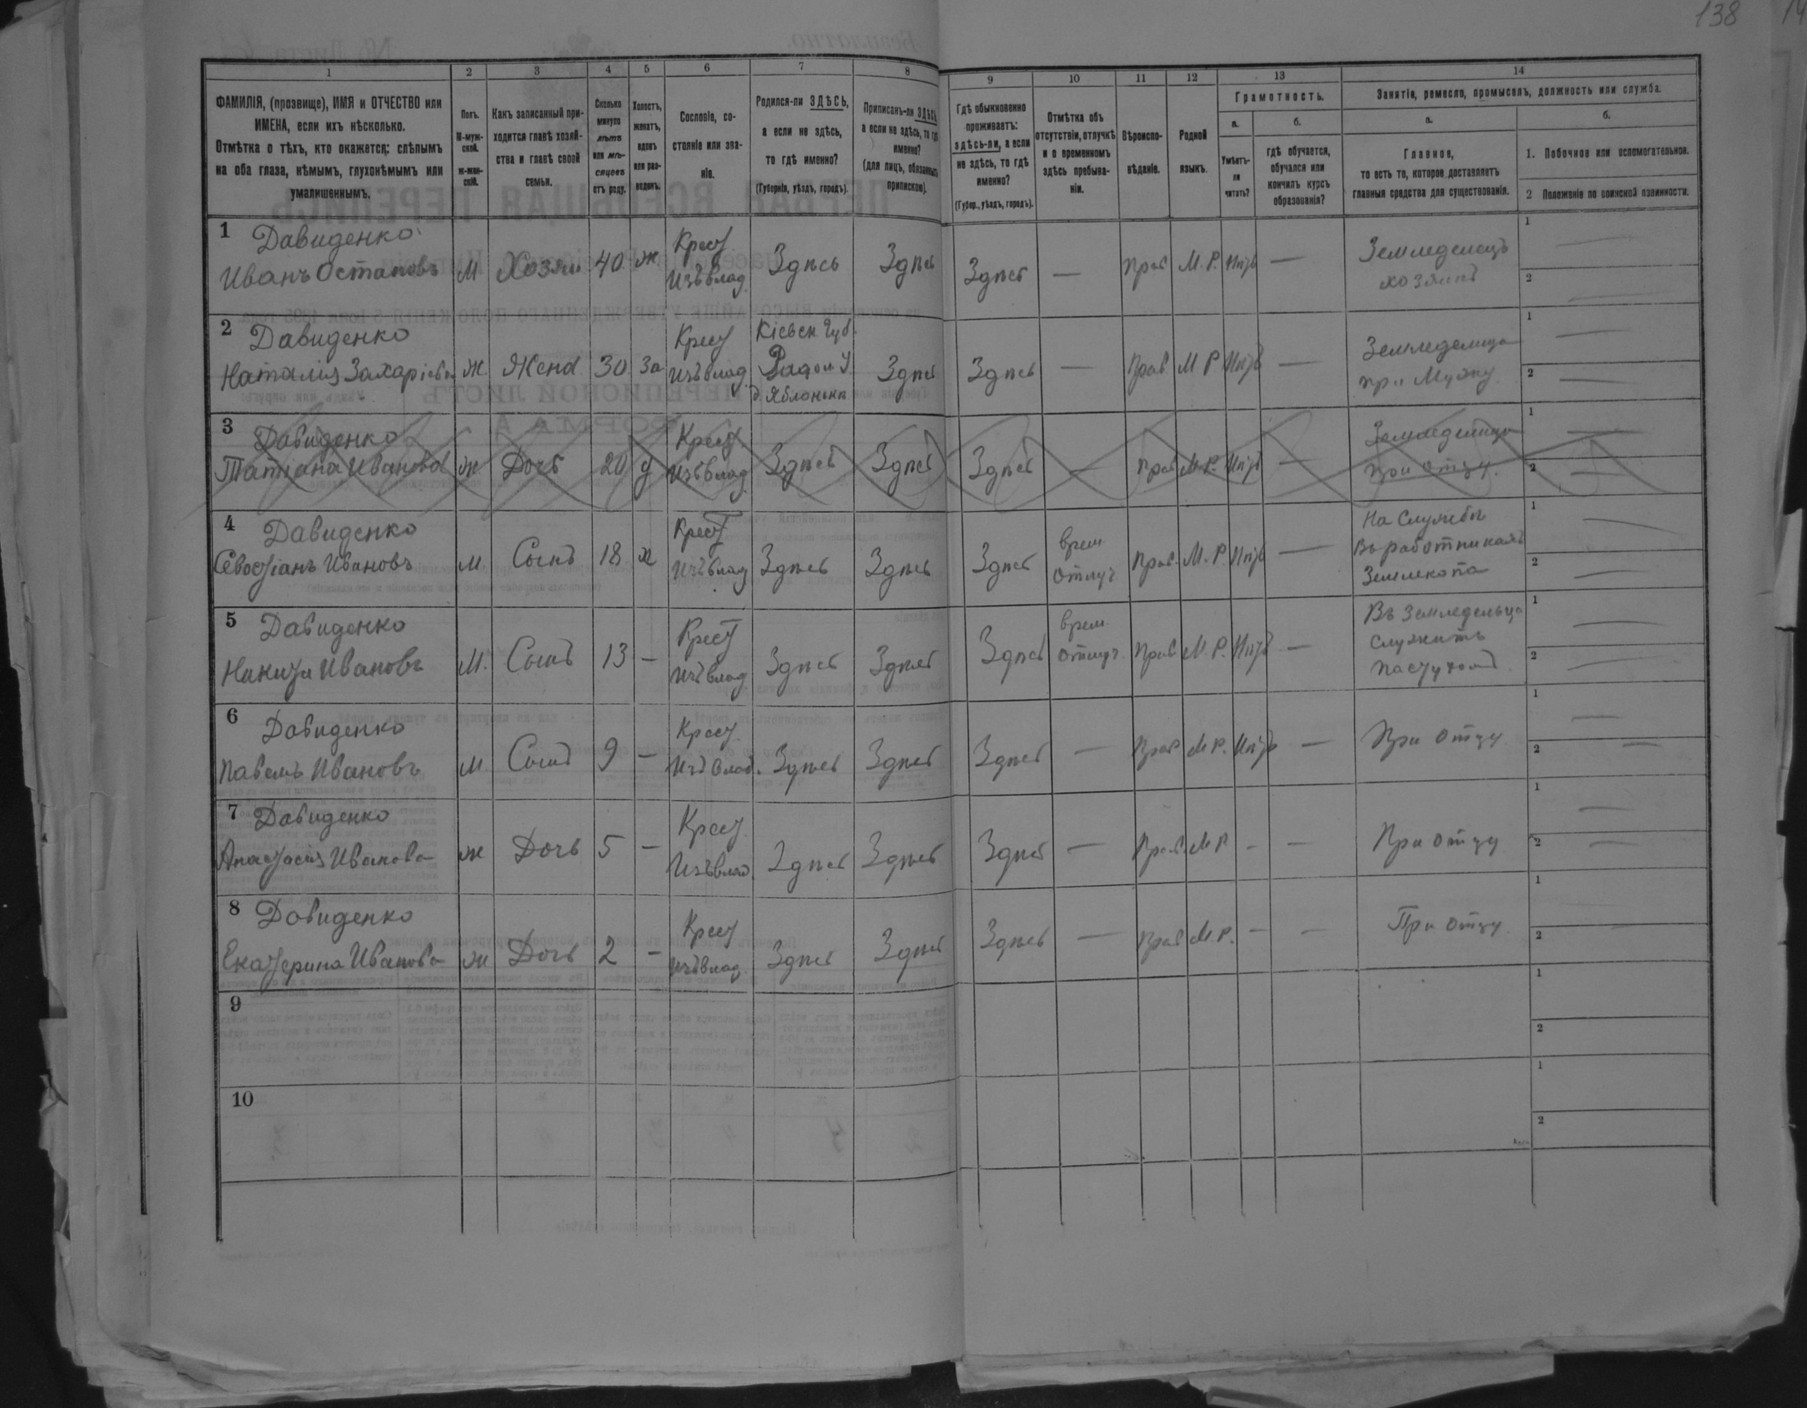 138
1 2 3 4 5 6 7 8 9 10 11 12 13 14
ФАМИЛІЯ, (прозвище), ИМЯ и ОТЧЕСТВО или
ИМЕНА, если ихъ нѣсколько.
Отмѣтка о тѣхъ, кто окажется: слѣпымъ
на оба глаза, нѣмымъ, глухонѣмымъ или
умалишеннымъ.
Полъ.
М-муж-
ской.
ж-жен-
скій.
Какъ записанный при-
ходится главѣ хозяй-
ства и главѣ своей
семьи.
Сколько
минуло
лѣтъ
или мѣ-
сяцевъ
отъ роду.
Холостъ,
женатъ,
вдовъ
или раз-
веденъ.
Сословіе, со-
стояніе или зва-
ніе.
Родился-ли ЗДѢСЬ,
а если не здѣсь,
то гдѣ именно?
(Губернія, уѣздъ, городъ).
Приписанъ-ли ЗДѢСЬ,
а если не здѣсь, то гдѣ
именно?
(для лицъ, обязанныхъ
припискою).
Гдѣ обыкновенно
проживаетъ:
здѣсь-ли, а если
не здѣсь, то гдѣ
именно?
(Губер., уѣздъ, городъ).
Отмѣтка объ
отсутствіи, отлучкѣ
и о временномъ
здѣсь пребыва-
ніи.
Вѣроиспо-
вѣданіе.
Родной
языкъ.
Грамотность.
а.
Умѣетъ-
ли
читать?
б.
гдѣ обучается,
обучался или
кончилъ курсъ
образованія?
Занятіе, ремесло, промыселъ, должность или служба.
а.
Главное,
то есть то, которое доставляетъ
главныя средства для существованія.
б.
1. Побочное или вспомогательное.
2 Положеніе по воинской повинности.
1 Давиденко
Иванъ Остаповъ М Хозяи 40 ж Крест Изъ влад. Здѣсь Здѣсь Здѣсь — Прав М. Р. Нѣтъ — Земледелецъ хозяинъ
1
2
2 Давиденко
Наталія Захаріева Ж Жена 30 За Крест Изъ влад. Кіевск Губ. Радом У д. Яблоневка Здѣсь Здѣсь — Прав М. Р. Нѣтъ — Земледелица при Мужу
1
2
3 Давиденко
Татіана Иванова Ж Дочь 20 д Крест Изъ влад. Здѣсь Здѣсь Здѣсь — Прав М. Р. Нѣтъ — Земледелица при отцу
1
2
4 Давиденко
Севостіанъ Ивановъ М. Сынъ 18 х Крест Изъ влад Здѣсь Здѣсь Здѣсь врем отлуч Прав. М. Р. Нѣтъ — На Службы Въ работникахъ Землекопа
1
2
5 Давиденко
Никита Ивановъ М. Сынъ 13 — Крест Изъ влад Здѣсь Здѣсь Здѣсь врем отлуч Прав М. Р. Нѣтъ — Въ Земледельца Служитъ пастухомъ
1
2
6 Давиденко
Павелъ Ивановъ М Сынъ 9 — Крест. Изъ влад. Здѣсь Здѣсь Здѣсь — Прав М Р. Нѣтъ — При отцу
1
2
7 Давиденко
Анастасія Иванова ж Дочь 5 — Крест Изъ влад. Здѣсь Здѣсь Здѣсь — Прав. М Р. - - При отцу
1
2
8 Давиденко
Екатерина Иванова ж Дочь 2 — Крест Изъ влад Здѣсь Здѣсь Здѣсь — Прав М. Р. - - При отцу
1
2
9
1
2
10
1
2